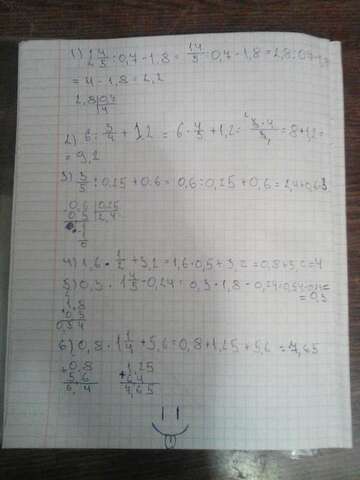 1) 2 4/5 : 0,7 - 1,8 = 14/5 : 0,7 - 1,8 = 2,8 : 0,7 - 1,8
= 4 - 1,8 = 2,2
2,8 | 0,7
4
2) 6 : 3/4 + 1,2 = 6 · 4/3 + 1,2 = = 8 + 1,2 =
= 9,2
3) 3/5 : 0.25 + 0.6 = 0,6 : 0,25 + 0,6 = 2,4 + 0,6 = 3
0,6 | 0,25
0,5 | 2,4
4) 1,6 · 1/2 + 3,2 = 1,6 · 0,5 + 3,2 = 0,8 + 3,2 = 4
5) 0,3 · 1 4/5 - 0,24 = 0,3 · 1,8 - 0,24 = 0,54 - 0,24 =
= 0,3
1,8
0,3
0,54
6) 0,8 · 1 1/4 + 5,6 = 0,8 + 1,25 + 5,6 = 7,65
+ 0,8
5,6
6,4
+ 1,25
6,4
7,65